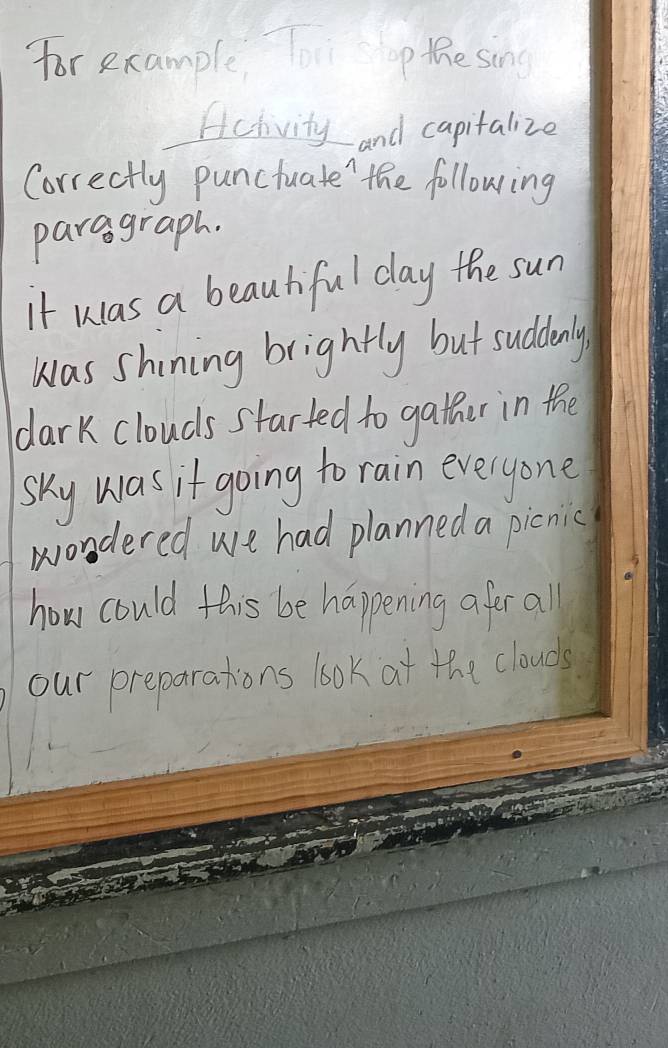 For example, Tori stop the sing
Activity
and capitalize
Correctly punctuate ^ the following
paragraph.
it was a beautiful day the sun
was shining brightly but suddenly,
dark clouds started to gather in the
sky was it going to rain everyone
wondered we had planned a picnic
how could this be happening afer all
our preparations look at the clouds